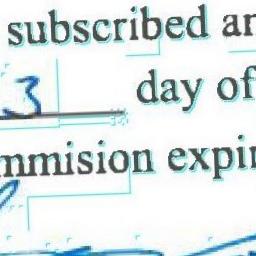 subscribed an
3 day of
mmision expir